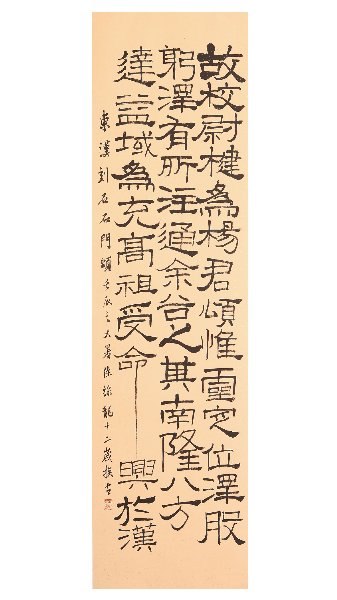 故校尉楗為楊君頌惟靈定位澤股
躬澤有所注通余谷之其南隆八方
達益域為充高祖受命興於漢
東漢刻石石門頌之大暑陳龍十二歲書